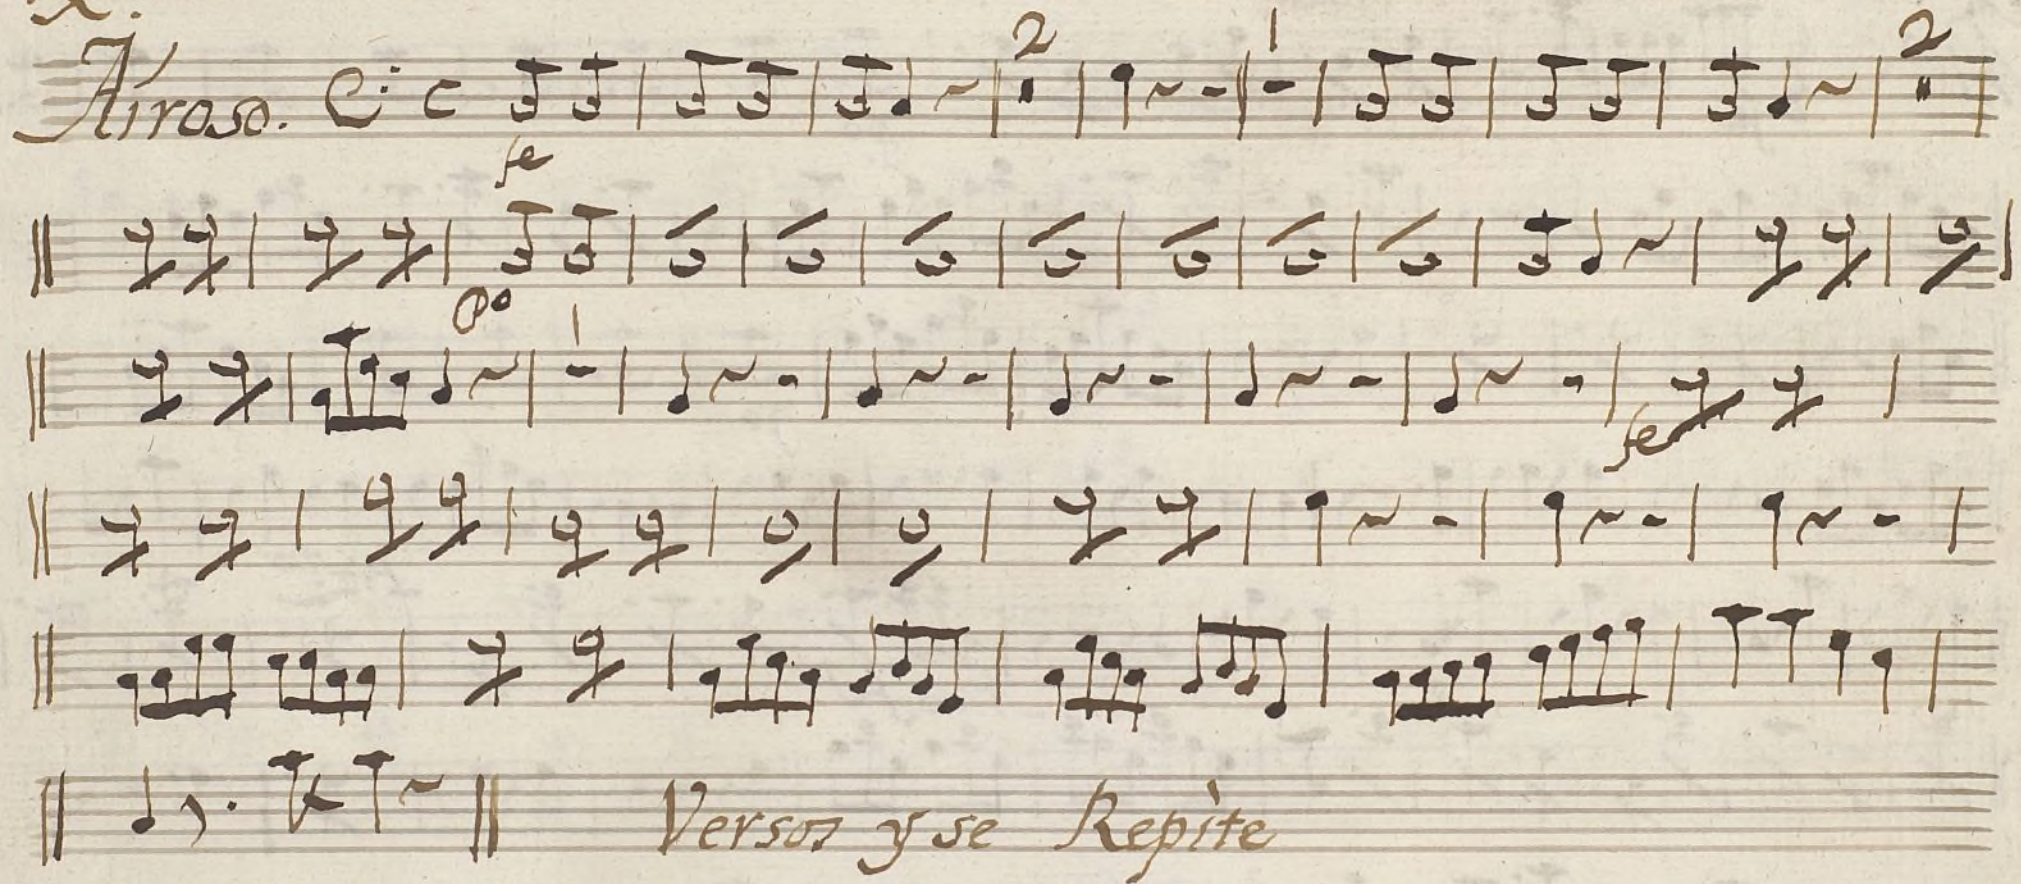 2 1 2
Airoso.
fe
Po
1
fe
Versos y se Repite